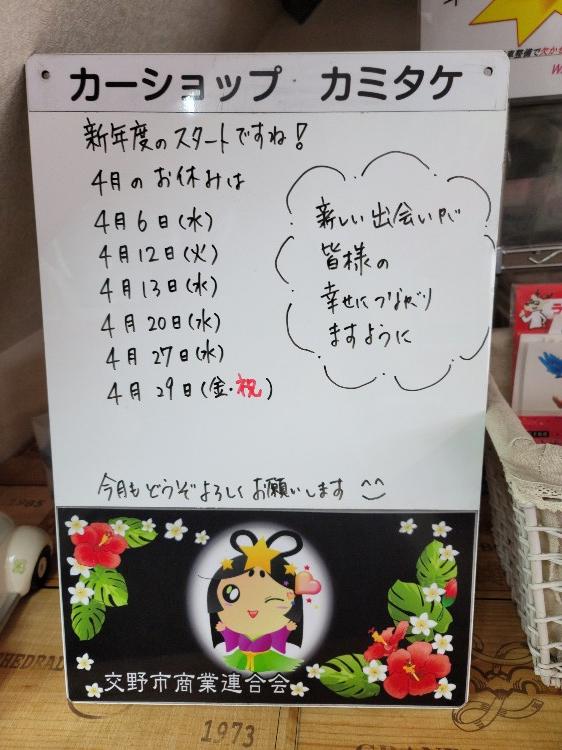 カーショップ カミタケ
新年度のスタートですね!
4月のお休みは
4月6日(水)
4月12日(火)
4月13日(水)
4月20日(水)
4月27日(水)
4月29日(金・祝)
新しい出会いが
皆様の
幸せにつながり
ますように
今月もどうぞよろしくお願いします ^^
交野市商業連合会
1985
1973